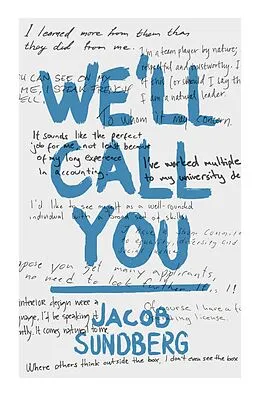 I learned more from them than
they did from me.
I'm a team player by nature;
respectful and trustworthy. I
YOU CAN SEE ON MY
ME, I SPEAK FRENCH
ELL.
if and / or should I say th
I am a natural leader.
To whom it may concern.
WE'LL
CALL
YOU
It sounds like the perfect
job for me, not least because
of my long experience
in accounting.
I've worked multiple
to my university de
I'd like to see myself as a well-rounded
individual with a broad set of skills
to equality, diversity and
pose you get many applicants,
no need to look further. It is I!
interior design were a
guage, I'd be speaking it
ently. It comes natural to me
Of course I have a
driving license.
JACOB
SUNDBERG
Where others think outside the box, I don't even see the box